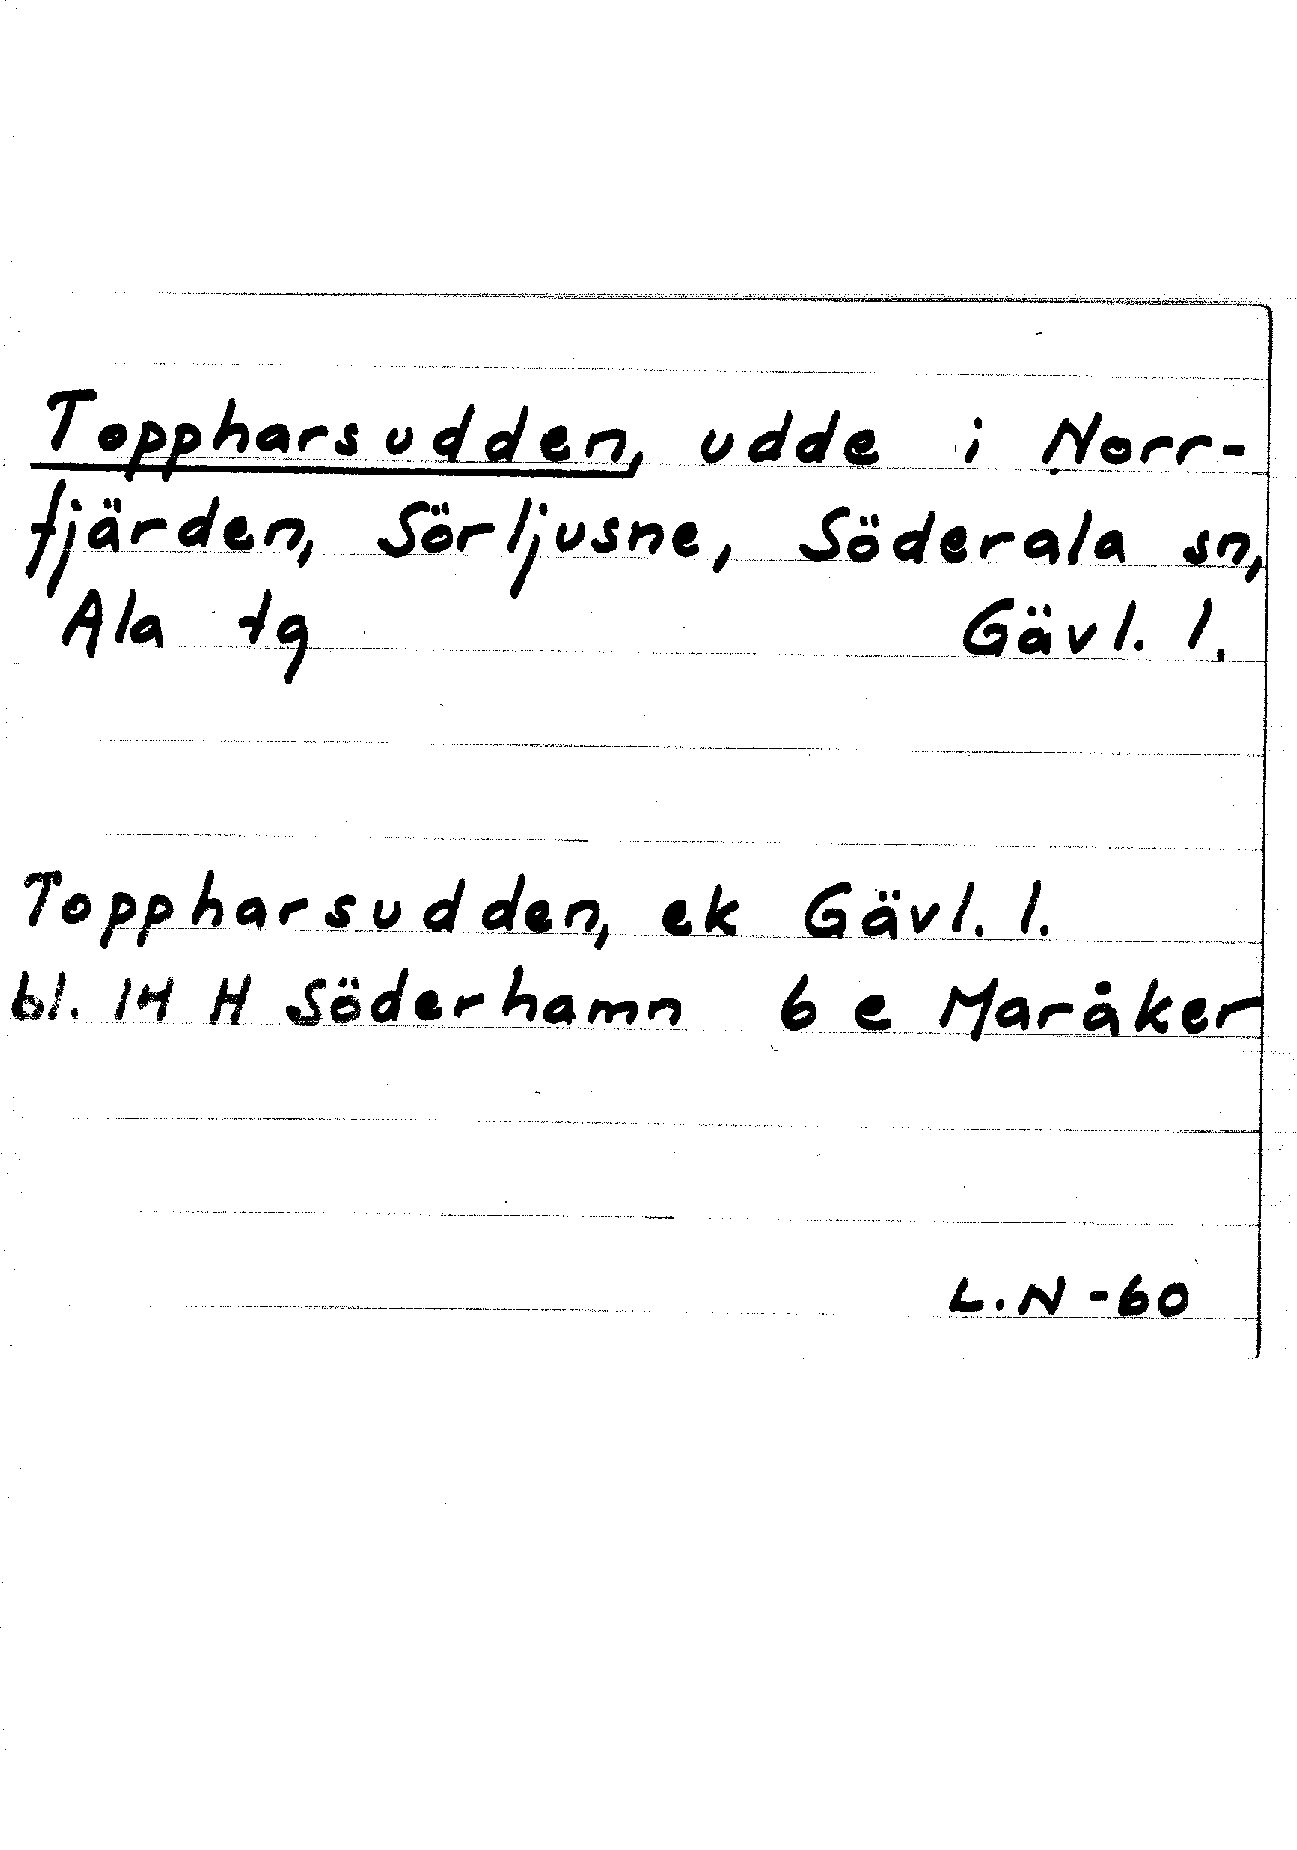 Toppharsudden, udde i Norr-
fjärden, Sörljusne, Söderala sn,
Ala tg Gävl. l.
Toppharsudden, ek Gävl. l.
bl. 14 H Söderhamn 6 e Maråker
L.N -60